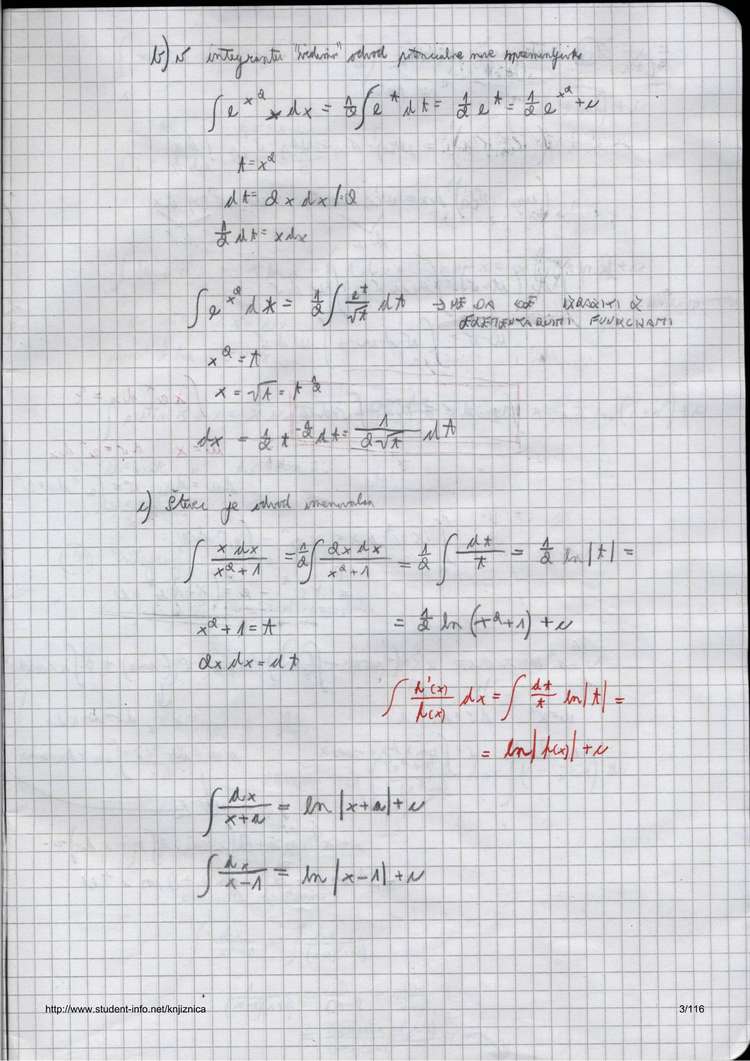 b) v integrantu "vidimo" odvod potencialne nove spremenljivke
∫ e^{x^2} x dx = 1/2 ∫ e^t dt = 1/2 e^t = 1/2 e^{x^2} + c
t = x^2
dt = 2x dx /:2
1/2 dt = x dx
∫ e^{x^2} dx = 1/2 ∫ e^t/√t dt → NE DA SE IZRAZITI Z
ELEMENTARNIMI FUNKCIJAMI
x^2 = t
x = √t = t^{1/2}
dx = 1/2 t^{-1/2} dt = 1/(2√t) dt
c) Števec je odvod imenovalca
∫ x dx/(x^2+1) = 1/2 ∫ 2x dx/(x^2+1) = 1/2 ∫ dt/t = 1/2 ln|t| =
x^2 + 1 = t
= 1/2 ln(x^2+1) + c
2x dx = dt
∫ h'(x)/h(x) dx = ∫ dt/t ln|t| =
= ln|h(x)| + c
∫ dx/(x+a) = ln|x+a| + c
∫ dx/(x-1) = ln|x-1| + c
http://www.student-info.net/knjiznica
3/116